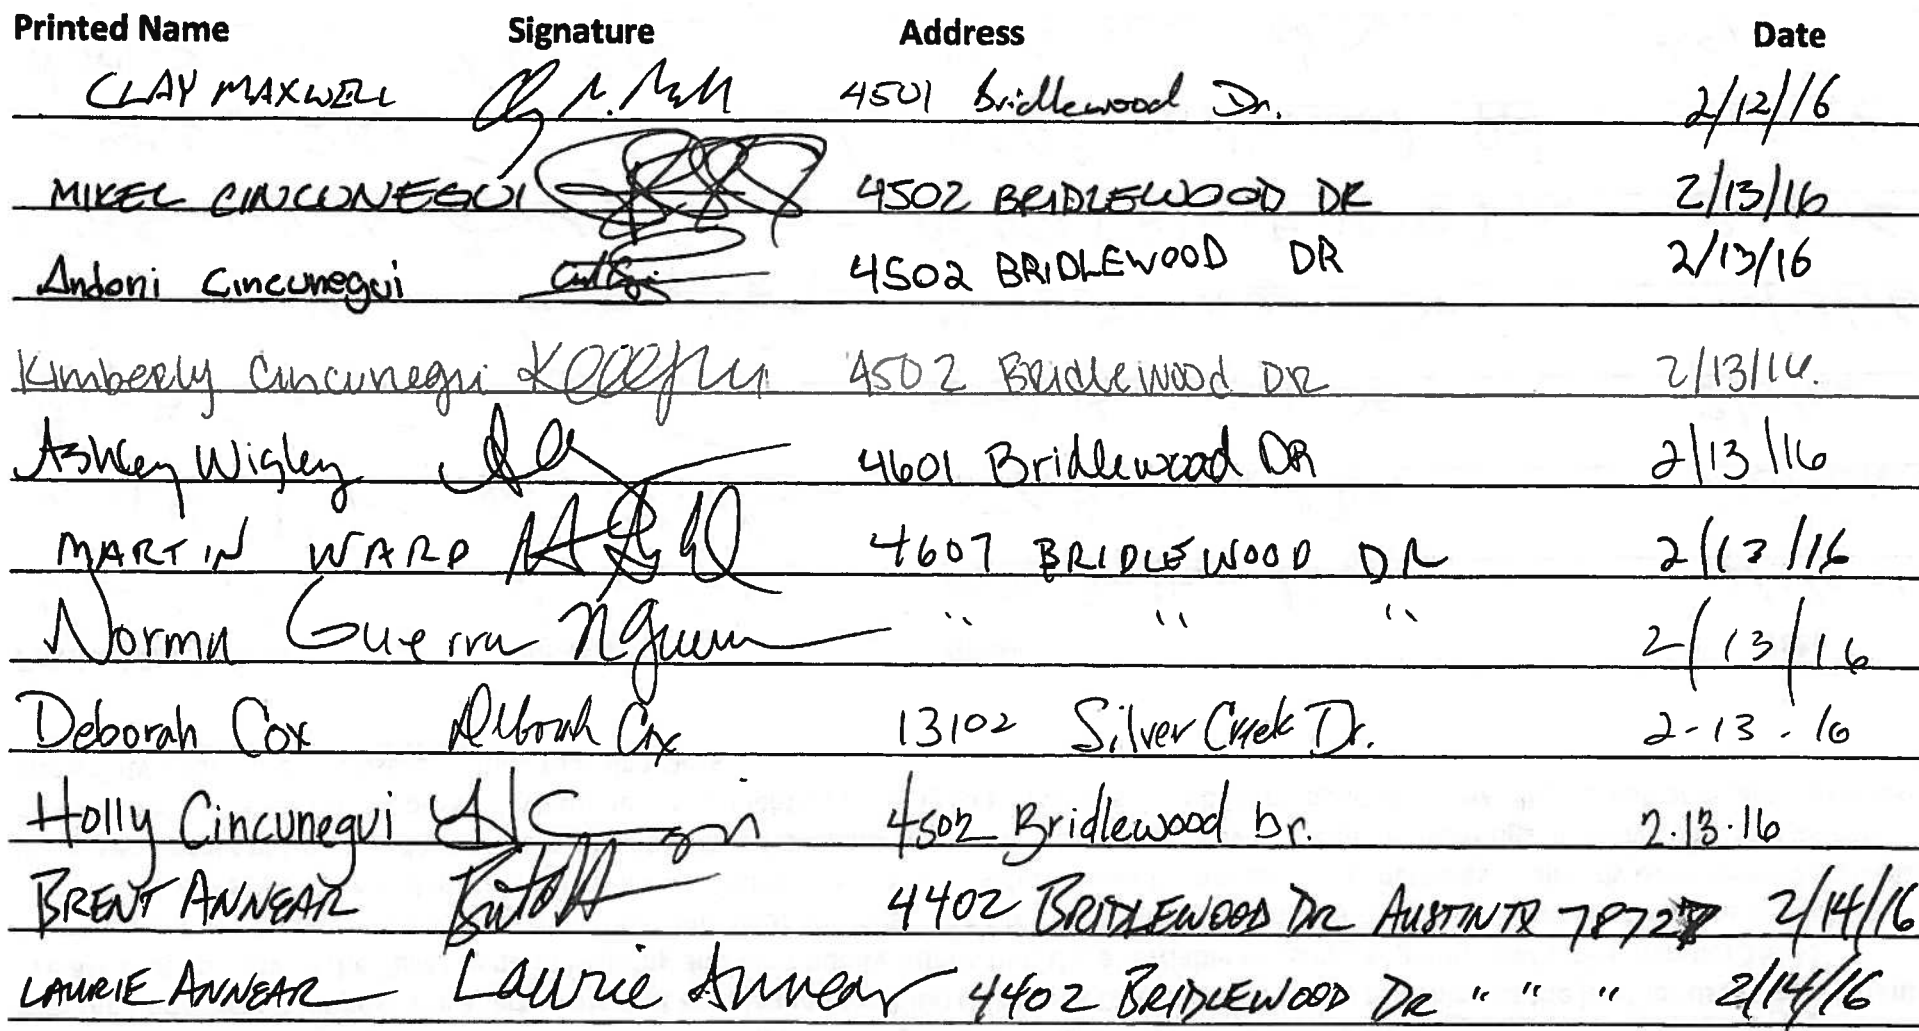 Printed Name Signature Address Date
CLAY MAXWELL 4501 Bridlewood Dr. 2/12/16
MIKEL CINCUNEGUI 4502 BRIDLEWOOD DR 2/13/16
Andoni Cincunegui 4502 BRIDLEWOOD DR 2/13/16
Kimberly Cincunegui 4502 Bridlewood DR 2/13/16.
Ashley Wigley 4601 Bridlewood DR 2/13/16
MARTIN WARD 4607 BRIDLEWOOD DR 2/13/16
Norma Guerra " " " 2/13/16
Deborah Cox Deborah Cox 13102 Silver Creek Dr. 2-13-16
Holly Cincunegui 4502 Bridlewood Dr. 2.13.16
BRENT ANNEAR 4402 BRIDLEWOOD DR AUSTIN TX 78727 2/14/16
LAURIE ANNEAR Laurie Annear 4402 BRIDLEWOOD DR " " " 2/14/16